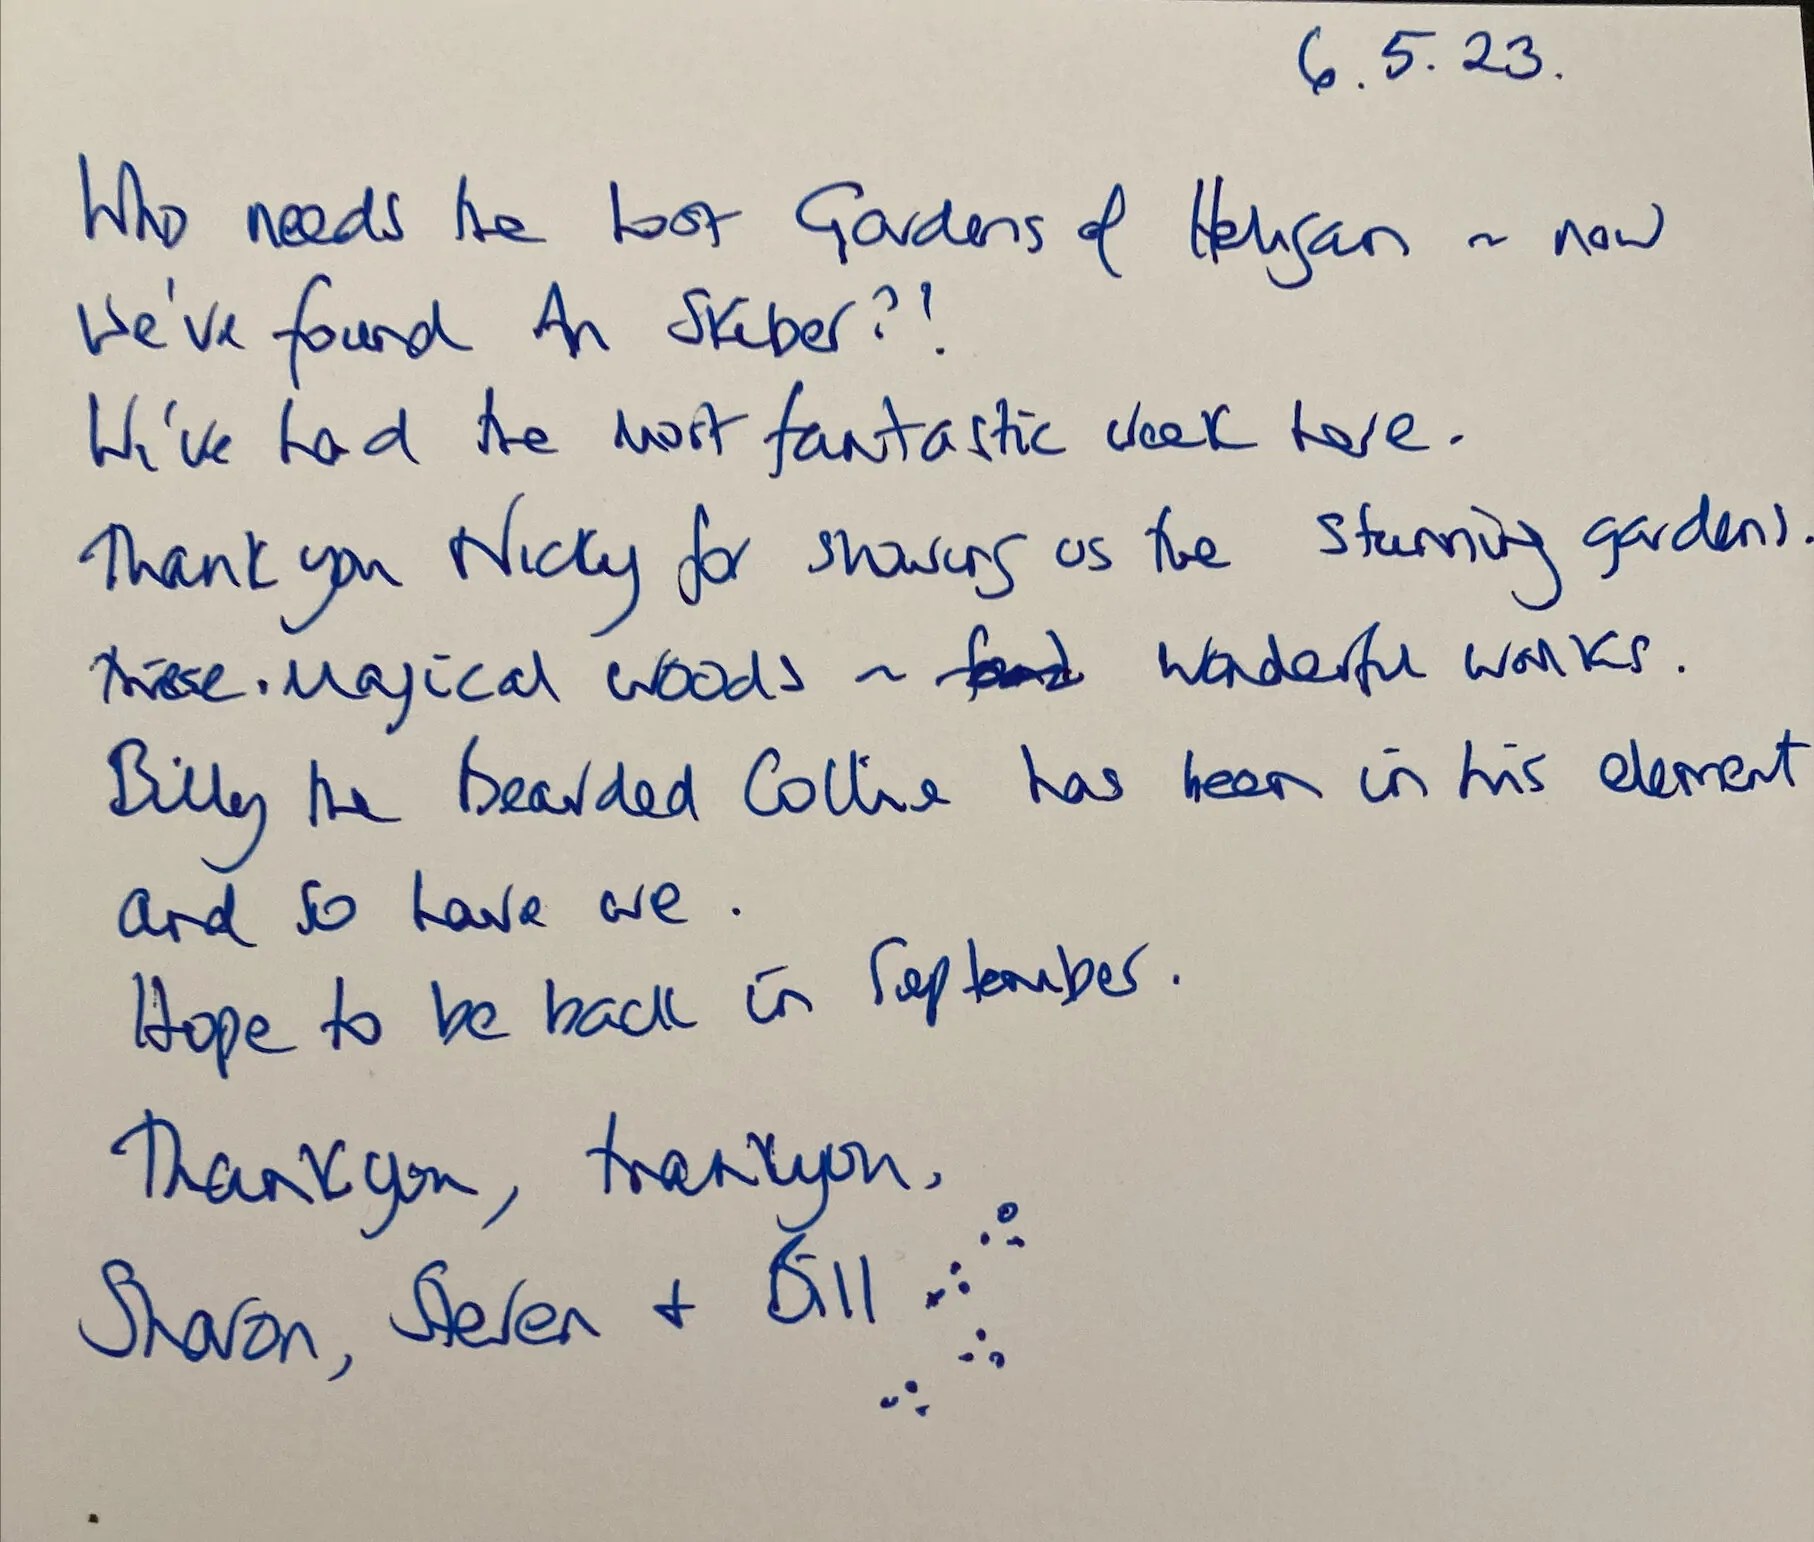 6.5.23.
Who needs the Lost Gardens of Heligan ~ now
we've found An Skiber?!
We've had the most fantastic week here.
Thank you Nicky for showing us the stunning gardens.
these. Magical woods ~ wonderful walks.
Billy the Bearded Collie has been in his element
and so have we.
Hope to be back in September.
Thankyou, thankyou,
Sharon, Steven + Bill